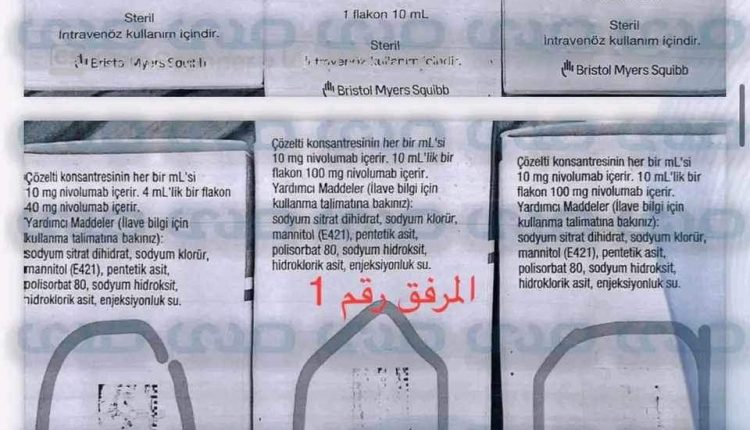 Steril
Intravenöz kullanım içindir.
Bristol Myers Squibb
1 flakon 10 mL
Steril
Intravenöz kullanım içindir.
Bristol Myers Squibb
Steril
Intravenöz kullanım içindir.
Bristol Myers Squibb
Çözelti konsantresinin her bir mL'si
10 mg nivolumab içerir. 4 mL'lik bir flakon
40 mg nivolumab içerir.
Yardımcı Maddeler (İlave bilgi için
kullanma talimatına bakınız):
sodyum sitrat dihidrat, sodyum klorür,
mannitol (E421), pentetik asit,
polisorbat 80, sodyum hidroksit,
hidroklorik asit, enjeksiyonluk su.
Çözelti konsantresinin her bir mL'si
10 mg nivolumab içerir. 10 mL'lik bir
flakon 100 mg nivolumab içerir.
Yardımcı Maddeler (İlave bilgi için
kullanma talimatına bakınız):
sodyum sitrat dihidrat, sodyum klorür,
mannitol (E421), pentetik asit,
polisorbat 80, sodyum hidroksit,
hidroklorik asit, enjeksiyonluk su.
Çözelti konsantresinin her bir mL'si
10 mg nivolumab içerir. 10 mL'lik bir
flakon 100 mg nivolumab içerir.
Yardımcı Maddeler (İlave bilgi için
kullanma talimatına bakınız):
sodyum sitrat dihidrat, sodyum klorür,
mannitol (E421), pentetik asit,
polisorbat 80, sodyum hidroksit,
hidroklorik asit, enjeksiyonluk su.
المرفق رقم 1